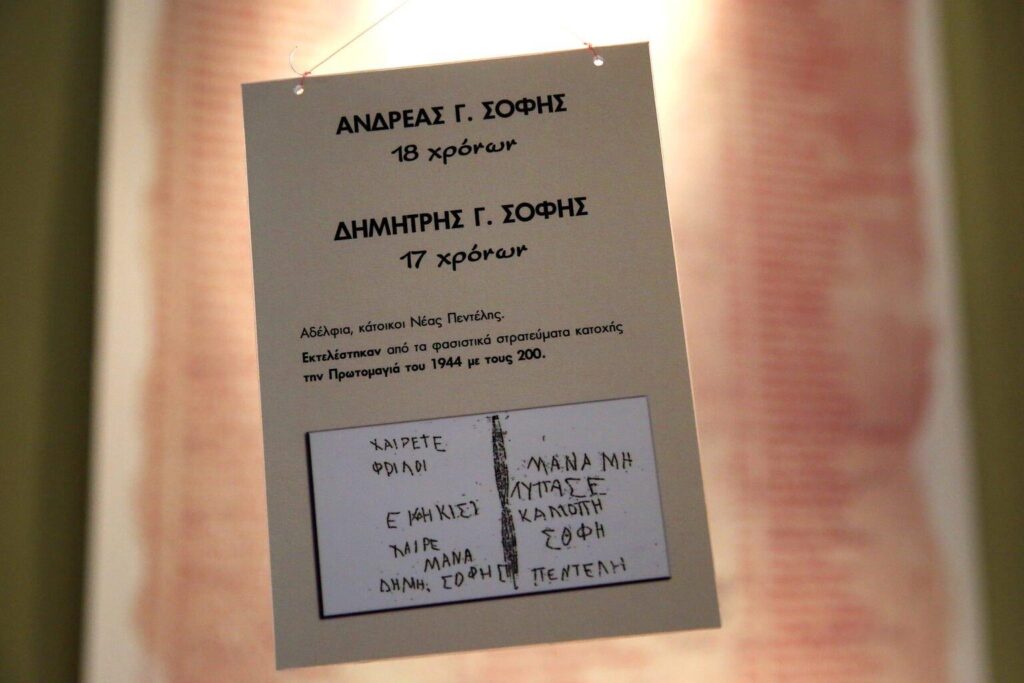 ΑΝΔΡΕΑΣ Γ. ΣΟΦΗΣ
18 χρόνων
ΔΗΜΗΤΡΗΣ Γ. ΣΟΦΗΣ
17 χρόνων
Αδέλφια, κάτοικοι Νέας Πεντέλης.
Εκτελέστηκαν από τα φασιστικά στρατεύματα κατοχής
την Πρωτομαγιά του 1944 με τους 200.
ΧΑΙΡΕΤΕ
ΧΑΙΡΕ
ΜΑΝΑ
ΔΗΜΗ. ΣΟΦΗΣ
ΜΑΝΑ ΜΗ
ΛΥΠΑΣΕ
ΣΟΦΗ
ΠΕΝΤΕΛΗ